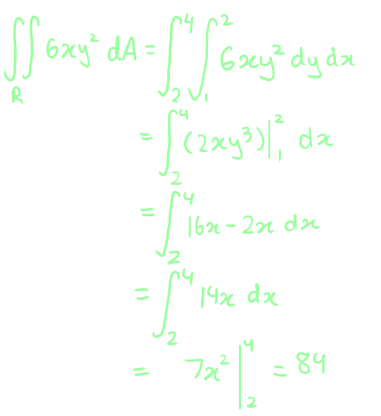 ∬_R 6xy² dA = ∫_2^4 ∫_1^2 6xy² dy dx
= ∫_2^4 (2xy³)|_1^2 dx
= ∫_2^4 16x - 2x dx
= ∫_2^4 14x dx
= 7x² |_2^4 = 84